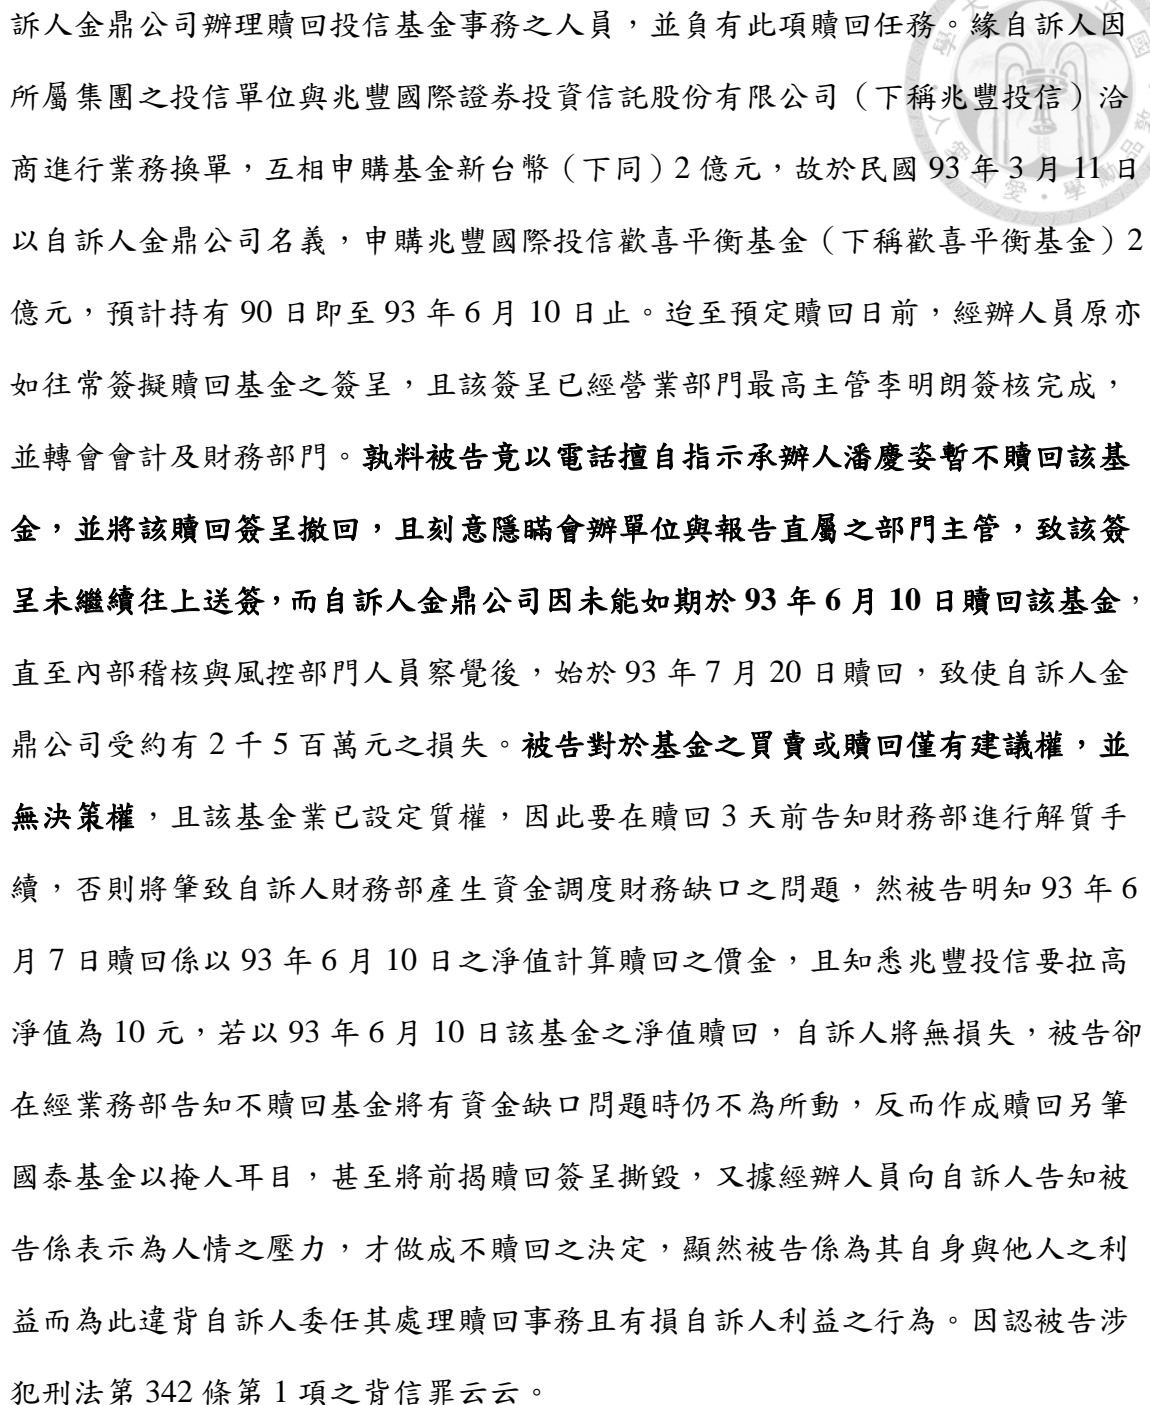 訴人金鼎公司辦理贖回投信基金事務之人員，並負有此項贖回任務。緣自訴人因
所屬集團之投信單位與兆豐國際證券投資信託股份有限公司（下稱兆豐投信）洽
商進行業務換單，互相申購基金新台幣（下同）2 億元，故於民國 93 年 3 月 11 日
以自訴人金鼎公司名義，申購兆豐國際投信歡喜平衡基金（下稱歡喜平衡基金）2
億元，預計持有 90 日即至 93 年 6 月 10 日止。迨至預定贖回日前，經辦人員原亦
如往常簽擬贖回基金之簽呈，且該簽呈已經營業部門最高主管李明朗簽核完成，
並轉會會計及財務部門。孰料被告竟以電話擅自指示承辦人潘慶姿暫不贖回該基
金，並將該贖回簽呈撤回，且刻意隱瞞會辦單位與報告直屬之部門主管，致該簽
呈未繼續往上送簽，而自訴人金鼎公司因未能如期於 93 年 6 月 10 日贖回該基金，
直至內部稽核與風控部門人員察覺後，始於 93 年 7 月 20 日贖回，致使自訴人金
鼎公司受約有 2 千 5 百萬元之損失。被告對於基金之買賣或贖回僅有建議權，並
無決策權，且該基金業已設定質權，因此要在贖回 3 天前告知財務部進行解質手
續，否則將肇致自訴人財務部產生資金調度財務缺口之問題，然被告明知 93 年 6
月 7 日贖回係以 93 年 6 月 10 日之淨值計算贖回之價金，且知悉兆豐投信要拉高
淨值為 10 元，若以 93 年 6 月 10 日該基金之淨值贖回，自訴人將無損失，被告卻
在經業務部告知不贖回基金將有資金缺口問題時仍不為所動，反而作成贖回另筆
國泰基金以掩人耳目，甚至將前揭贖回簽呈撕毀，又據經辦人員向自訴人告知被
告係表示為人情之壓力，才做成不贖回之決定，顯然被告係為其自身與他人之利
益而為此違背自訴人委任其處理贖回事務且有損自訴人利益之行為。因認被告涉
犯刑法第 342 條第 1 項之背信罪云云。